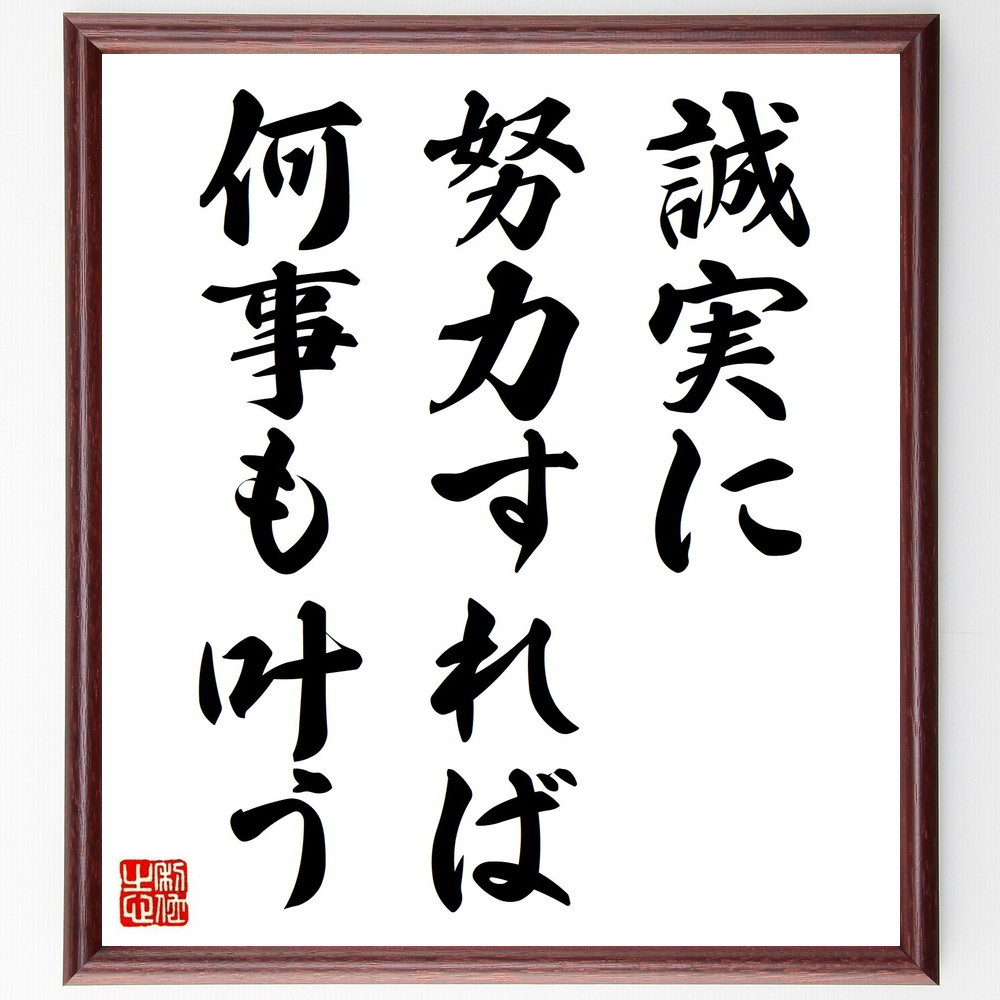 誠実に
努力すれば
何事も叶う